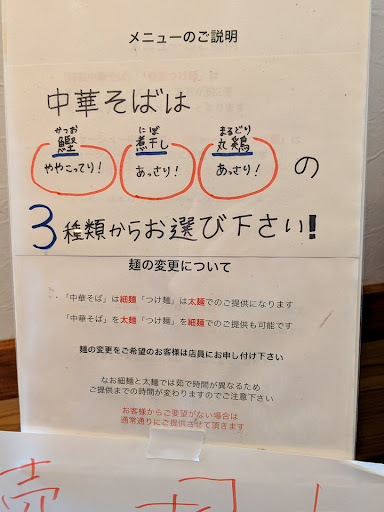 メニューのご説明
中華そばは
かつお にぼ まるどり
鰹 煮干し 丸鶏
ややこってり! あっさり! あっさり! の
3種類からお選び下さい!
麺の変更について
・「中華そば」は細麺「つけ麺」は太麺でのご提供になります
「中華そば」を太麺「つけ麺」を細麺でのご提供も可能です
麺の変更をご希望のお客様は店員にお申し付け下さい
なお細麺と太麺では茹で時間が異なるため
ご提供までの時間が変わりますのでご注意下さい
お客様からご要望がない場合は
通常通りにご提供させて頂きます